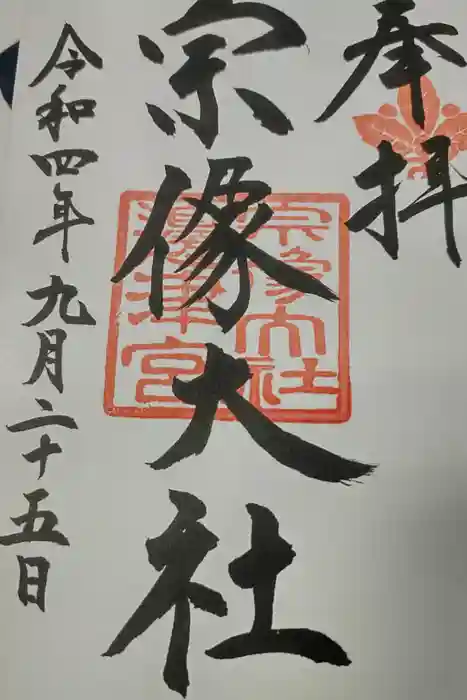 奉拝
宗像大社
宗像大社
邊津宮
令和四年九月二十五日